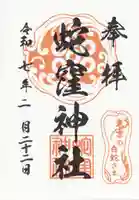 奉拝
蛇窪神社
令和七年二月二十二日
白蛇さま